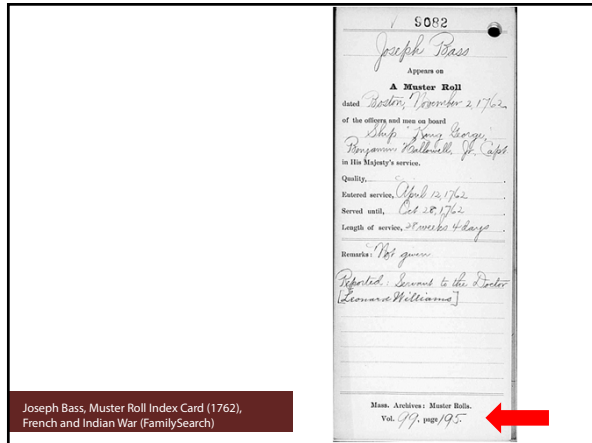 9082
Joseph Bass
Appears on
A Muster Roll
dated Boston, November 2, 1762
of the officers and men on board
Ship "King George,"
Benjamin Hallowell, Jr. Capt
in His Majesty's service.
Quality,
Entered service, April 12, 1762
Served until, Oct 28, 1762
Length of service, 28 weeks 4 days
Remarks: Not given
Reported: Servant to the Doctor
[Leonard Williams]
Mass. Archives: Muster Rolls.
Vol. 99. page 195.
Joseph Bass, Muster Roll Index Card (1762),
French and Indian War (FamilySearch)